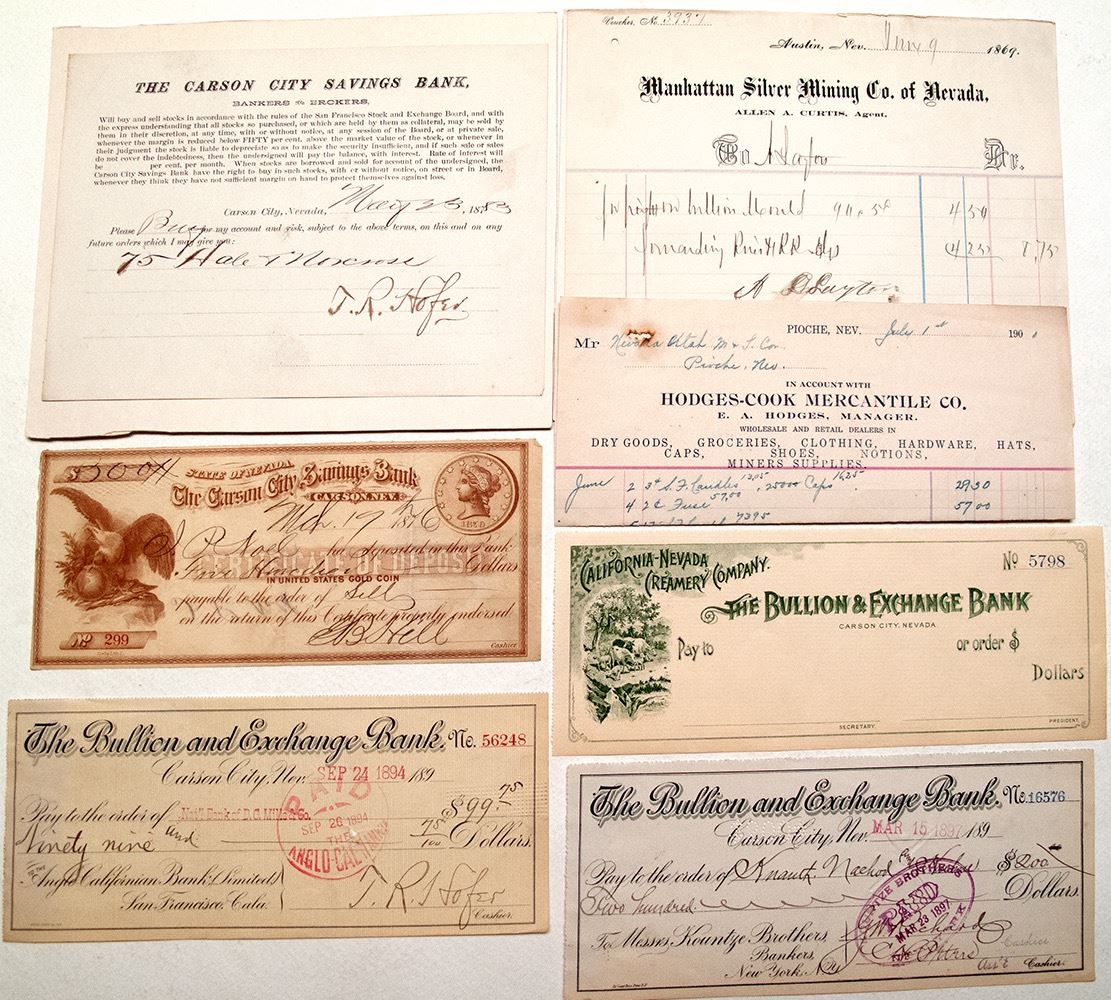 THE CARSON CITY SAVINGS BANK,
BANKERS & BROKERS,
Will buy and sell stocks in accordance with the rules of the San Francisco Stock and Exchange Board, and with
the express understanding that all stocks so purchased, or which are held by them as collateral, may be sold by
them in their discretion, at any time, with or without notice, at any session of the Board, or at private sale,
whenever the margin is reduced below FIFTY per cent. above the market value of the stock, or whenever in
their judgment the stock is liable to depreciate so as to make the security insufficient, and if such sale or sales
do not cover the indebtedness, then the undersigned will pay the balance, with interest. Rate of interest will
be per cent. per month. When stocks are borrowed and sold for account of the undersigned, the
Carson City Savings Bank have the right to buy in such stocks, with or without notice, on street or in Board,
whenever they think they have not sufficient margin on hand to protect themselves against loss.
Carson City, Nevada, May 23, 1883
Please Buy for my account and risk, subject to the above terms, on this and on any
future orders which I may give you:
75 Hale & Norcross
T. R. Hofer
Voucher, No. 3937
Austin, Nev. 9 1869.
Manhattan Silver Mining Co. of Nevada,
ALLEN A. CURTIS, Agent,
To Dr.
bullion 4 50
forwarding 4 25 8,75
PIOCHE, NEV. July 1st 1900
Mr Nevada Utah M & S. Con
Pioche, Nev.
IN ACCOUNT WITH
HODGES-COOK MERCANTILE CO.
E. A. HODGES, MANAGER.
WHOLESALE AND RETAIL DEALERS IN
DRY GOODS, GROCERIES, CLOTHING, HARDWARE, HATS,
CAPS, SHOES, NOTIONS,
MINERS SUPPLIES.
June 2 S.F. Candles 12,05 , 25000 Caps 16,25 29.30
4 2¢ Fuse 57,00 57,00
7395
$500.04
STATE OF NEVADA
The Carson City Savings Bank
CARSON, NEV.
Mch. 19th 1876
J. P. Noel has deposited in this Bank
CERTIFICATE OF DEPOSIT
Five Hundred Dollars
IN UNITED STATES GOLD COIN
payable to the order of Self
on the return of this Certificate properly endorsed
No 299
Cashier
CALIFORNIA-NEVADA
CREAMERY COMPANY.
No 5798
THE BULLION & EXCHANGE BANK
CARSON CITY, NEVADA
Pay to or order $
Dollars
SECRETARY.
PRESIDENT.
The Bullion and Exchange Bank. No. 56248
Carson City, Nev. SEP 24 1894 189
Pay to the order of Nat'l Bank of D.O. Mills & Co. $99.75
Ninety nine and 75/100 Dollars.
TO THE
Anglo Californian Bank (Limited)
San Francisco, Cala.
T. R. Hofer
Cashier.
PAID
SEP 26 1894
THE
ANGLO-CALIFORNIAN
The Bullion and Exchange Bank. No. 16576
Carson City, Nev. MAR 15 1897 189
Pay to the order of Knauth Nachod & Kuhne $200
Two hundred Dollars
To Messrs. Kountze Brothers,
Bankers,
New York, N.Y.
Ass't Cashier.
KOUNTZE BROTHERS
PAID
MAR 23 1897